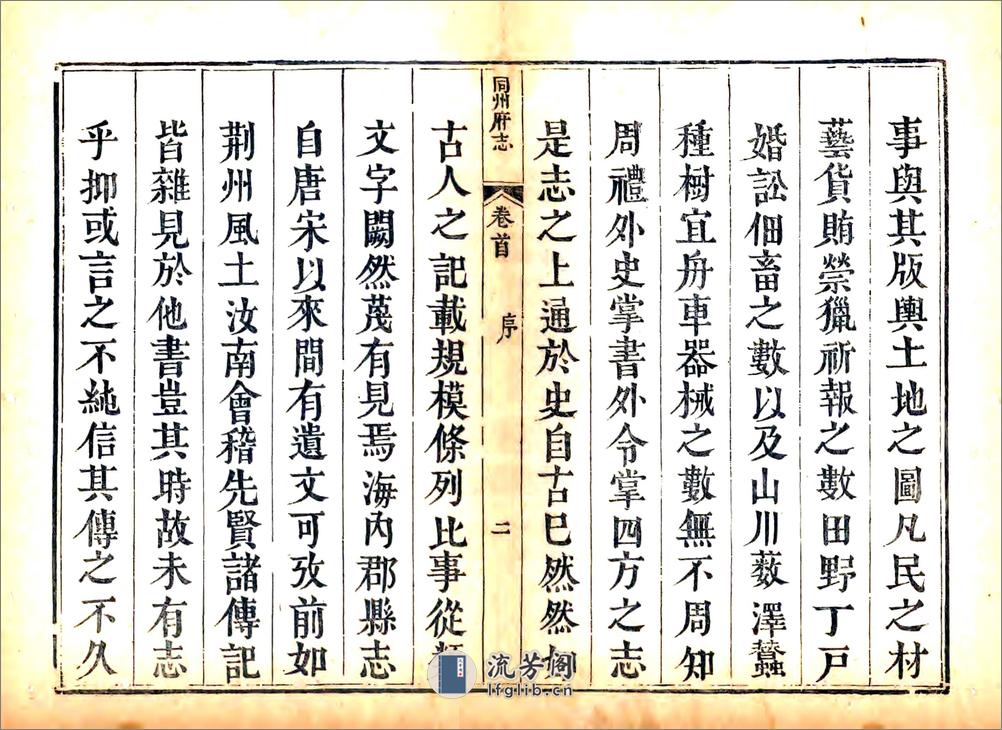 事與其版輿土地之圖凡民之材
藝貨賄禜獵祈報之數田野丁戸
婚訟佃畜之數以及山川薮澤蠶
種樹宜舟車器械之數無不周知
周禮外史掌書外令掌四方之志
是志之上通於史自古巳然然
同州府志
卷首
序
二
古人之記載規模條列比事從
文字闕然蔑有見焉海內郡縣志
自唐宋以來間有遺文可攷前如
荆州風土汝南會稽先賢諸傳記
皆雜見於他書豈其時故未有志
乎抑或言之不純信其傳之不久
流芳阁
lfglib.cn